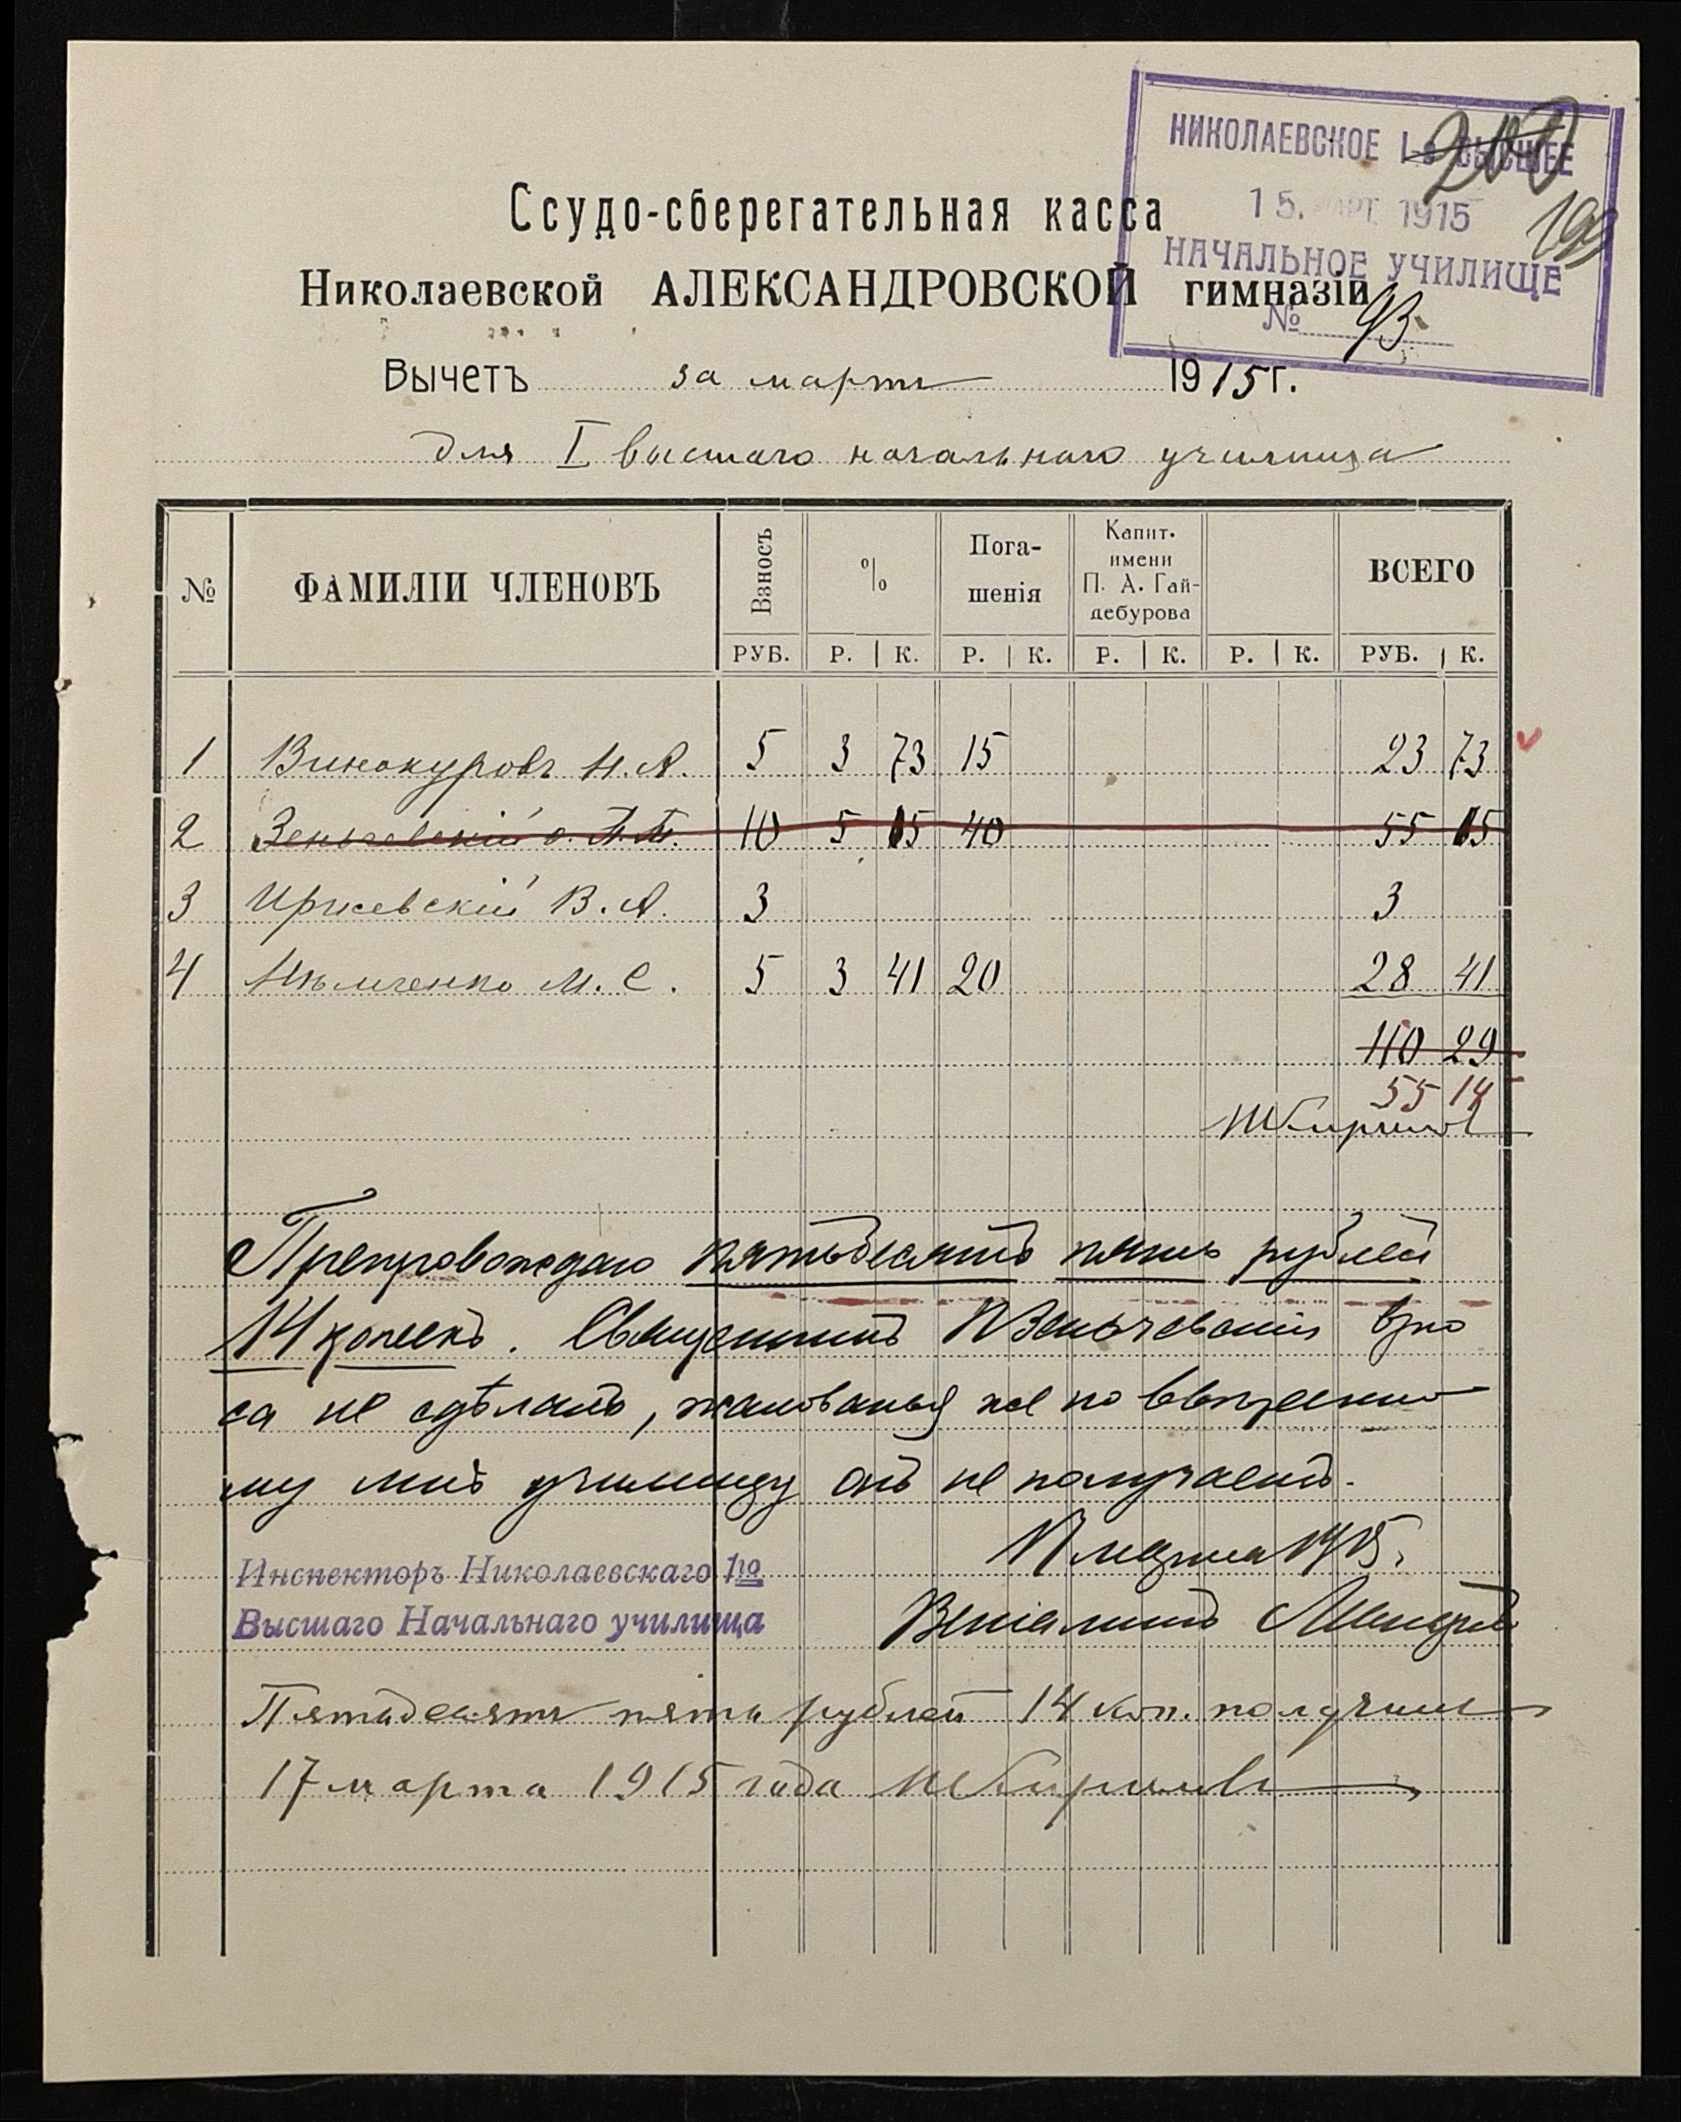 НИКОЛАЕВСКОЕ 1-е ВЫСШЕЕ
200
15. МАРТ. 1915
199
НАЧАЛЬНОЕ УЧИЛИЩЕ
№ 93
Ссудо-сберегательная касса
Николаевской АЛЕКСАНДРОВСКОЙ гимназіи
Вычетъ за мартъ 1915 г.
для I высшаго начальнаго училища
№ ФАМИЛІИ ЧЛЕНОВЪ Взносъ % Пога-шенія Капит. имени П. А. Гай-дебурова ВСЕГО
РУБ. Р. К. Р. К. Р. К. Р. К. РУБ. К.
1 Винокуровъ Н. А. 5 3 73 15 23 73
2 Зеньчевскій о. П. 10 5 15 40 55 15
3 Иржевскій В. А. 3 3
4 Нѣмченко М. С. 5 3 41 20 28 41
110 29
55 14
Препровождаю пятьдесятъ пять рублей
14 копеекъ. Священникъ Зеньчевскій взно
са не сдѣлалъ, жалованья же по ввѣренно
му мнѣ училищу онъ не получаетъ.
17 марта 1915.
Инспекторъ Николаевскаго 1го
Высшаго Начальнаго училища
Веніаминъ
Пятьдесятъ пять рублей 14 коп. получилъ
17 марта 1915 года